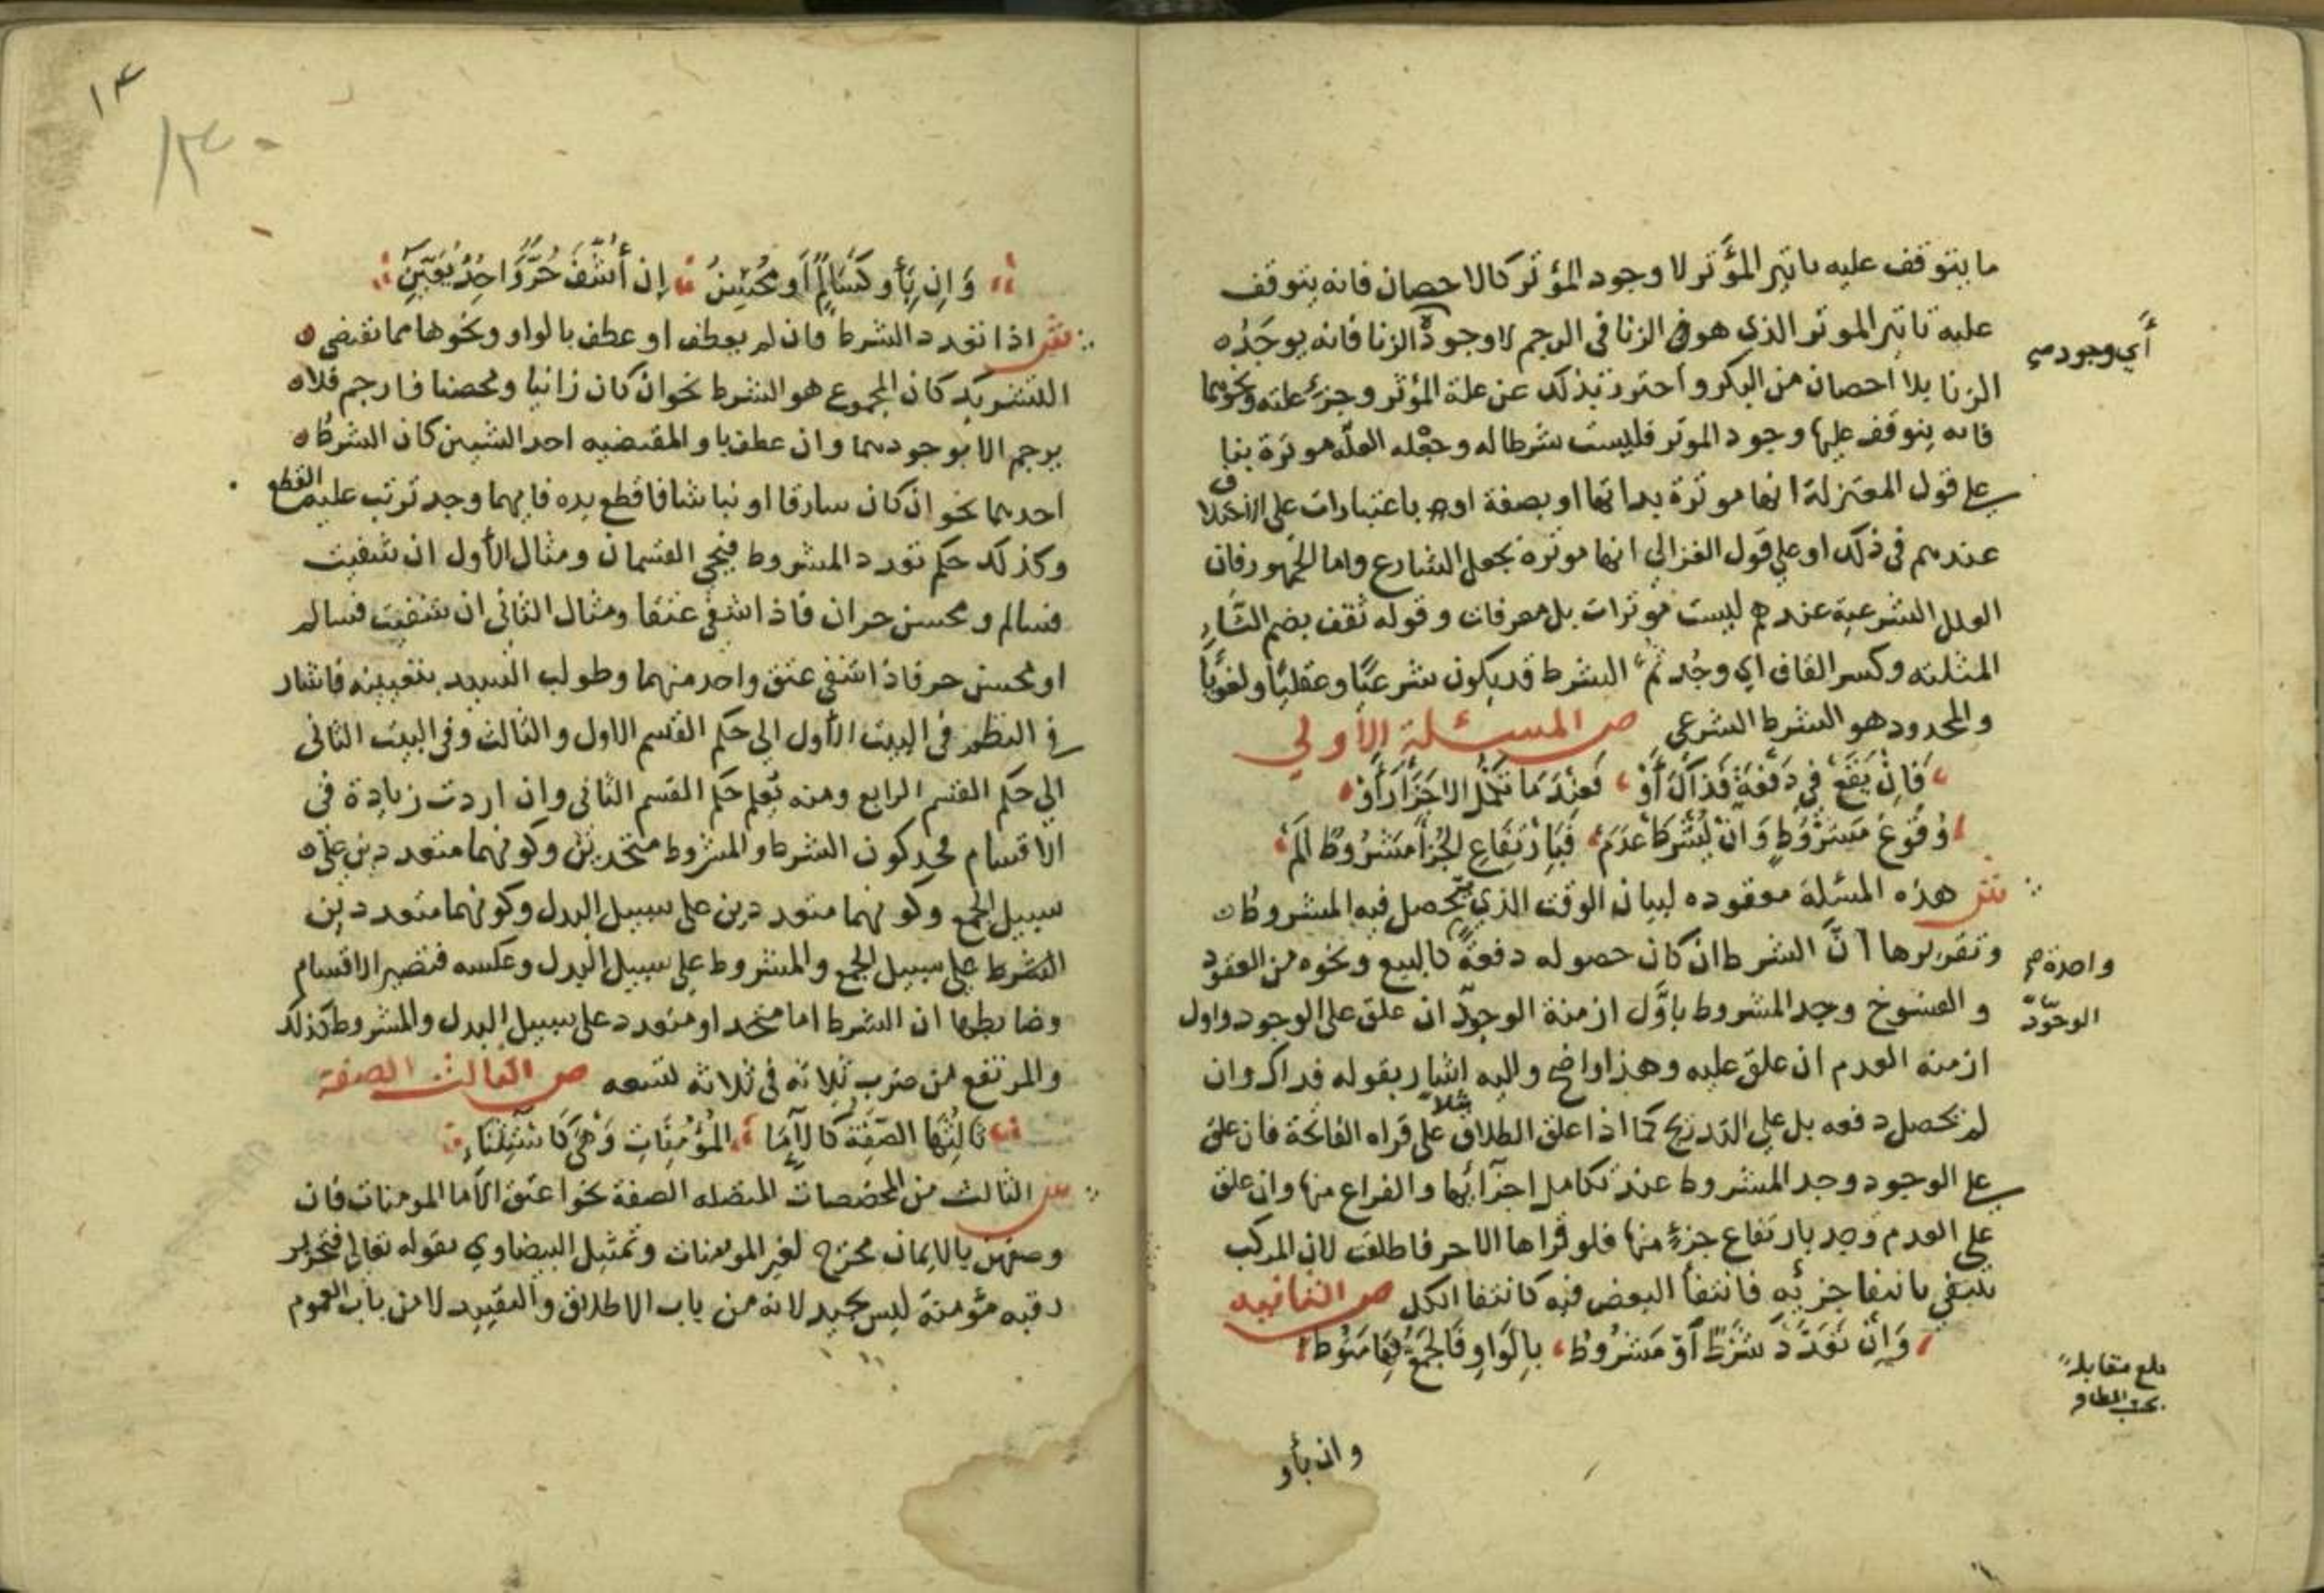 ما يتوقف عليه تاثير المؤثر لا وجود المؤثر كالاحصان فانه يتوقف
عليه تاثير الموثر الذي هو الزنا في الرجم لا وجود الزنا فانه يوجد
أي وجود صح
الزنا بلا احصان من البكر واحترز بذلك عن علة المؤثر وجزء علته ونحوهما
فانه يتوقف عليها وجود الموثر فليست شرطا له وجعله العلة موثرة بنا
على قول المعتزلة انها موثرة بداتها او بصفة او باعتبارات على الاختلاف
عندهم في ذلك او على قول الغزالي انها موثرة بجعل الشارع واما الجمهور فان
العلل الشرعية عندهم ليست موثرات بل معرفات وقوله ثقف بضم الثاء
المثلثه وكسر القاف اي وجد ثم الشرط قد يكون شرعيا وعقليا ولغويا
والمحدود هو الشرط الشرعي ص المسئلة الأولي
فَإِنْ يَقَعْ فِي دَفْعَةٍ فَذَاكَ أَوْ فَعِنْدَمَا تَكْمُلُ الاجْزَا رَأَوْ
وُقُوعَ مَشْرُوطٍ وَانْ يُشْرَطْ عَدَمْ فَبِارْتِفَاعِ الجُزْءِ مَشْرُوطٌ أَلَمْ
ش هذه المسئلة معقوده لبيان الوقت الذي يحصل فيه المشروط
وتقريرها أنَّ الشرط ان كان حصوله دفعة كالبيع ونحوه من العقود
واحدة صح
والفسوخ وجد المشروط باوَّل ازمنة الوجود ان علق على الوجود واول
الوجود
ازمنة العدم ان علق عليه وهذا واضح واليه اشار بقوله فذاك وان
لم يحصل دفعه بل على التدريج كما اذا علق الطلاق مثلا على قراه الفاتحة فان علق
على الوجود وجد المشروط عند تكامل اجزائها والفراغ منها وان علق
على العدم وجد بارتفاع جزء منها فلو قراها الا حرفا طلقت لان المركب
ينتفى بانتفا جزئه فانتفا البعض فيه كانتفا الكل ص الثانيه
وَإِنْ تَعَدَّدَ شَرْطٌ أَوْ مَشْرُوطُ بِالْوَاوِ فَالجَمْعُ بِهَا مَنُوطُ
بلغ مقابلة
وان بأو
١٣
١٣٠
وَإِنْ بِأَوْ كَسَالِمٌ أَو مُحْسِنُ إن أُشْفَ حُرٌّ وَاحِدٌ يُعَيِّنُ
ش اذا تعدد الشرط فان لم يعطف او عطف بالواو ونحوها مما تقتضى
التشريك كان المجموع هو الشرط نحو ان كان زانيا ومحصنا فارجم فلا
يرجم الا بوجودهما وان عطف باو المقتضيه احد الشيين كان الشرط
احدهما نحو ان كان سارقا او نباشا فاقطع يده فايهما وجد ترتب عليه القطع
وكذلك حكم تعدد المشروط فيجي القسمان ومثال الأول ان شفيت
فسالم ومحسن حران فاذا اشفى عتقا ومثال الثاني ان شفيت فسالم
او محسن حر فاذا اشفى عتق واحد منهما وطولب السيد بتعيينه فاشار
في النظم في البيت الأول الي حكم القسم الاول والثالث وفى البيت الثانى
الي حكم القسم الرابع ومنه يعلم حكم القسم الثاني وان اردت زيادة في
الاقسام فخذ كون الشرط والمشروط متحدين وكونهما متعددين على
سبيل الجمع وكونهما متعددين على سبيل البدل وكونهما متعددين
الشرط على سبيل الجمع والمشروط على سبيل البدل وعكسه فتصير الاقسام
وضابطها ان الشرط اما متحد او متعدد على سبيل البدل والمشروط كذلك
والمرتفع من ضرب ثلاثه في ثلاثه تسعه ص الثالث الصفة
ثَالِثُهَا الصِّفَةُ كَالإمَا المُؤْمِنَاتِ وَهْيَ كَاسْتِثْنَاءِ
ش الثالث من المخصصات المتصله الصفة نحو اعتق الاما المومنات فان
وصفهن بالايمان مخرج لغير المومنات وتمثيل البيضاوي بقوله تعالى فتحرير
رقبه مؤمنة ليس بجيد لانه من باب الاطلاق والتقييد لا من باب العموم